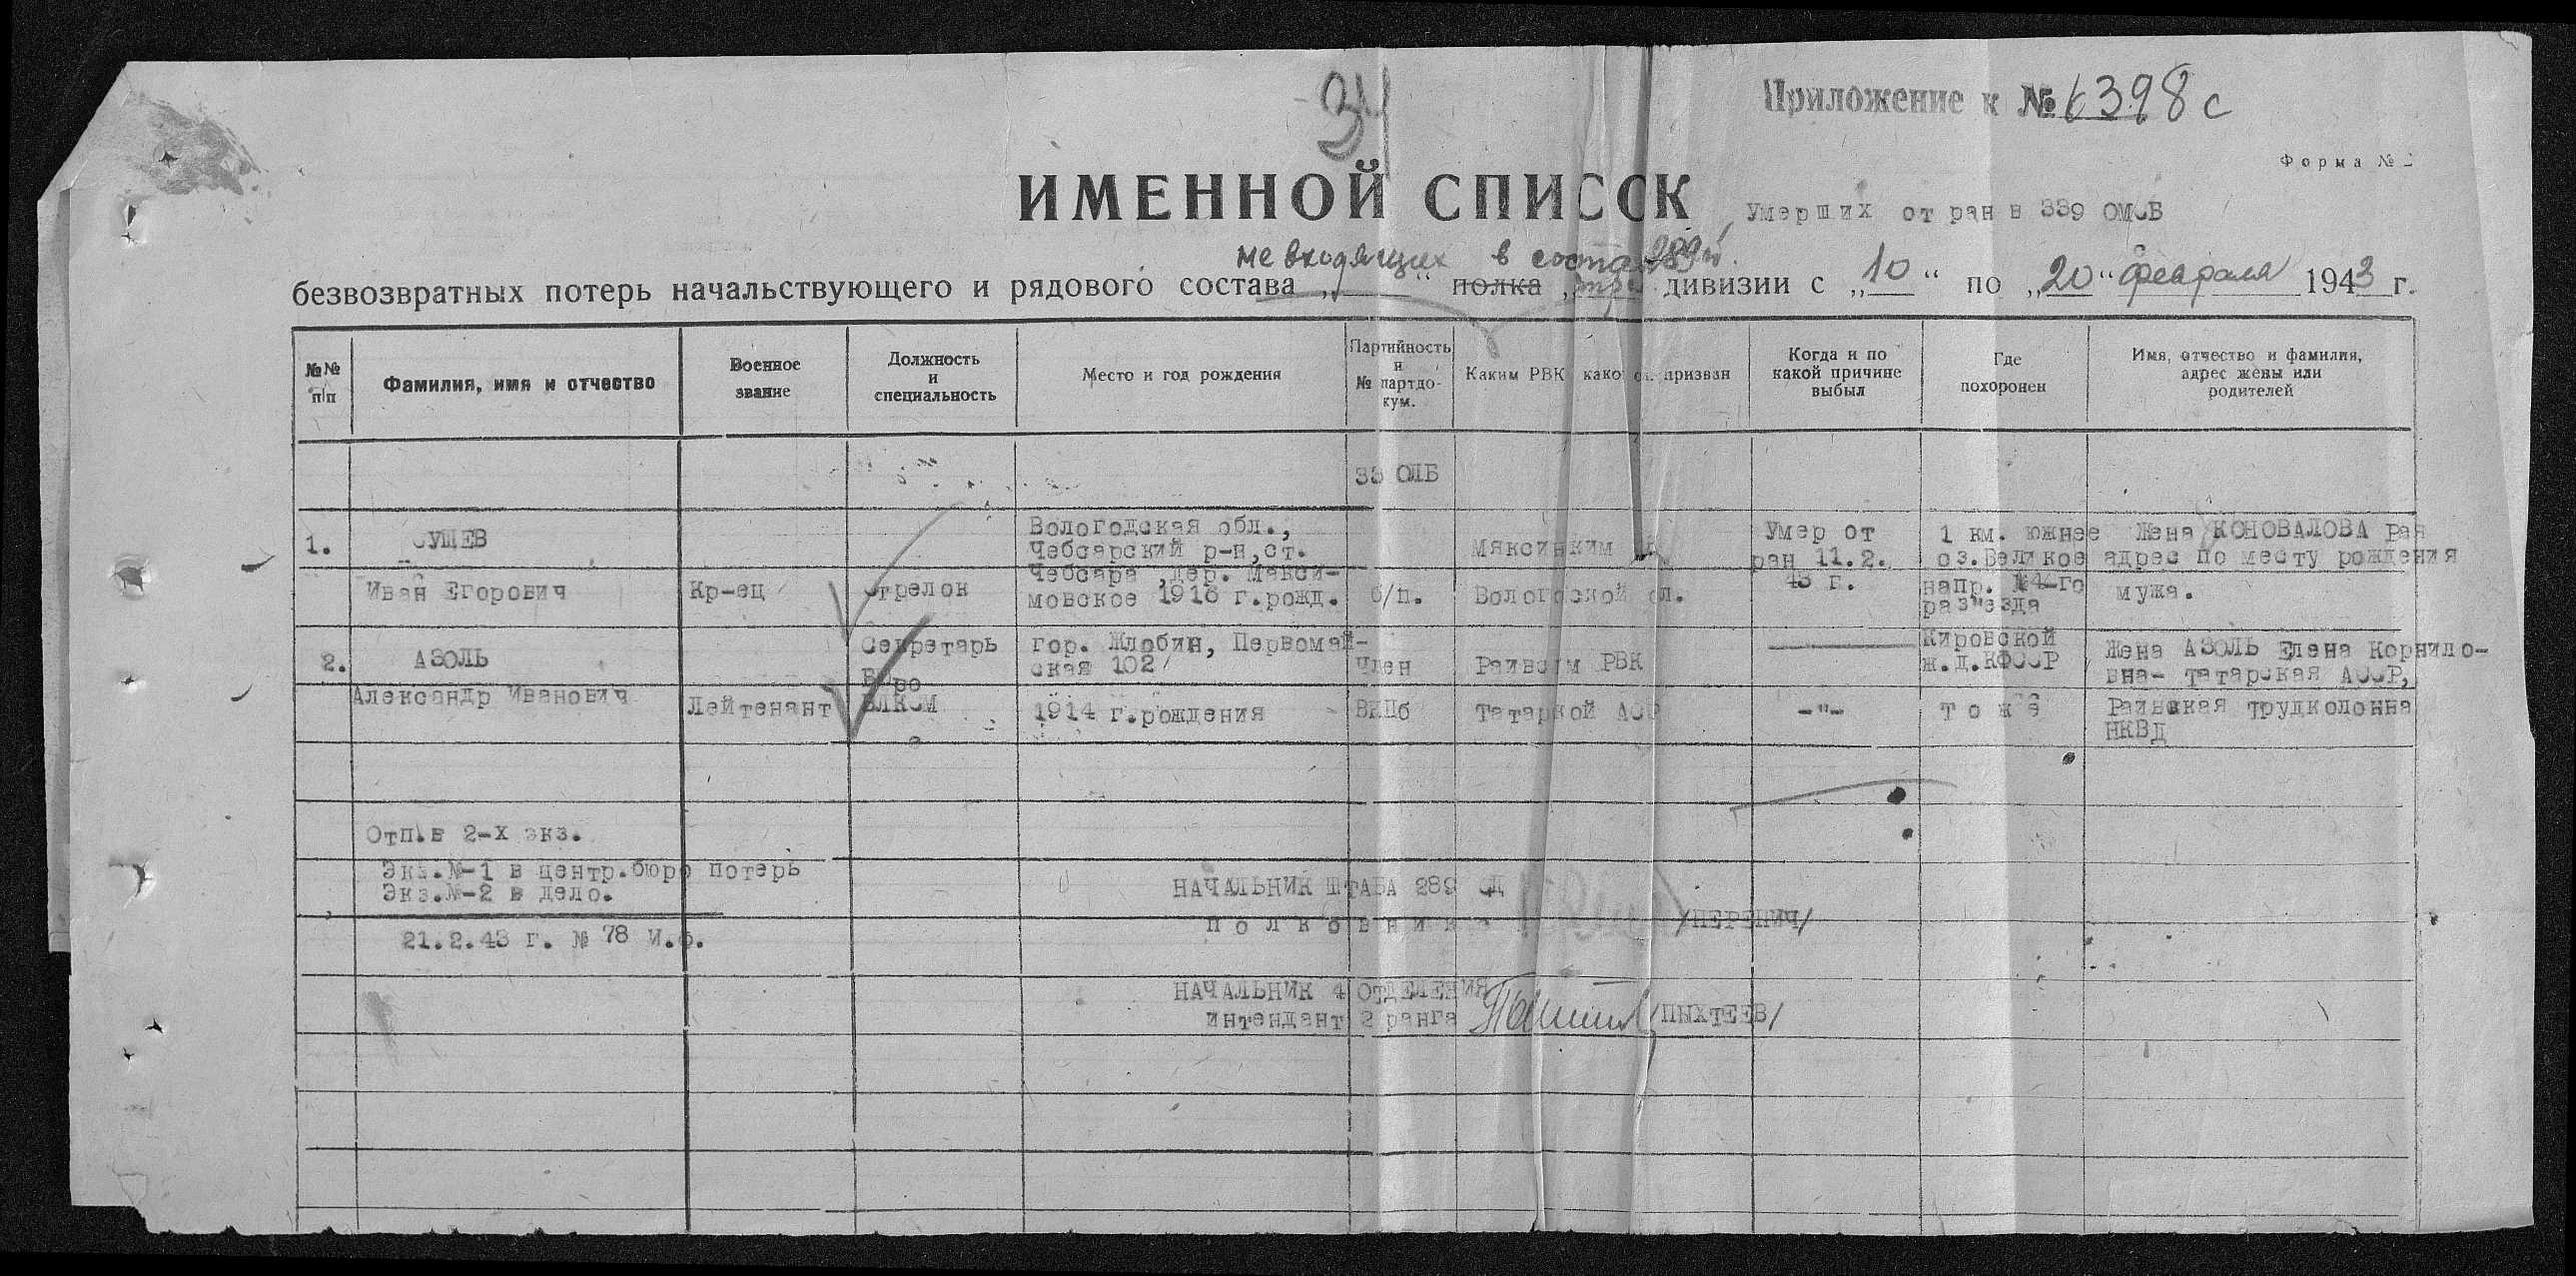 34
Приложение к № 6398с
Форма № 2
ИМЕННОЙ СПИСОК Умерших от ран в 339 ОМСБ
не входящих в состав 289й
безвозвратных потерь начальствующего и рядового состава „ “ полка „ дивизии с „10“ по „20“ февраля 1943 г.
№№ п/п
Фамилия, имя и отчество
Военное звание
Должность и специальность
Место и год рождения
Партийность и № партдокум.
Каким РВК како призван
Когда и по какой причине выбыл
Где похоронен
Имя, отчество и фамилия, адрес жены или родителей
33 ОЛБ
1.
СУШЕВ
Иван Егорович
Кр-ец
Стрелок
Вологодская обл.,
Чебсарский р-н, ст.
Чебсара, дер. Макси-
мовское 1916 г.рожд.
б/п.
Мяксинким
Вологодской обл.
Умер от
ран 11.2.
43 г.
1 км. южнее
оз.Великое
напр. №14-го
раз"езда
Жена КОНОВАЛОВА Рая
адрес по месту рождения
мужа.
2.
АЗОЛЬ
Александр Иванович
Лейтенант
Секретарь
Бюро
ВЛКСМ
гор. Жлобин, Первомай-
ская 102
1914 г.рождения
Член
ВКПб
Раивсим РВК
Татаркой АСС
-"-
Кировской
ж.д.КФССР
т о ж е
Жена АЗОЛЬ Елена Корнило-
вна- Татарская АССР,
Раинская трудколонна
НКВД
Отп.в 2-х экз.
Экз.№-1 в центр.бюро потерь
Экз.№-2 в дело.
21.2.43 г. № 78 И.Ф.
НАЧАЛЬНИК ШТАБА 289 СД
П о л к о в н и к /ПЕРЕНИЧ/
НАЧАЛЬНИК 4 ОТДЕЛЕНИЯ
интендант 2 ранга /ПЫХТЕЕВ/